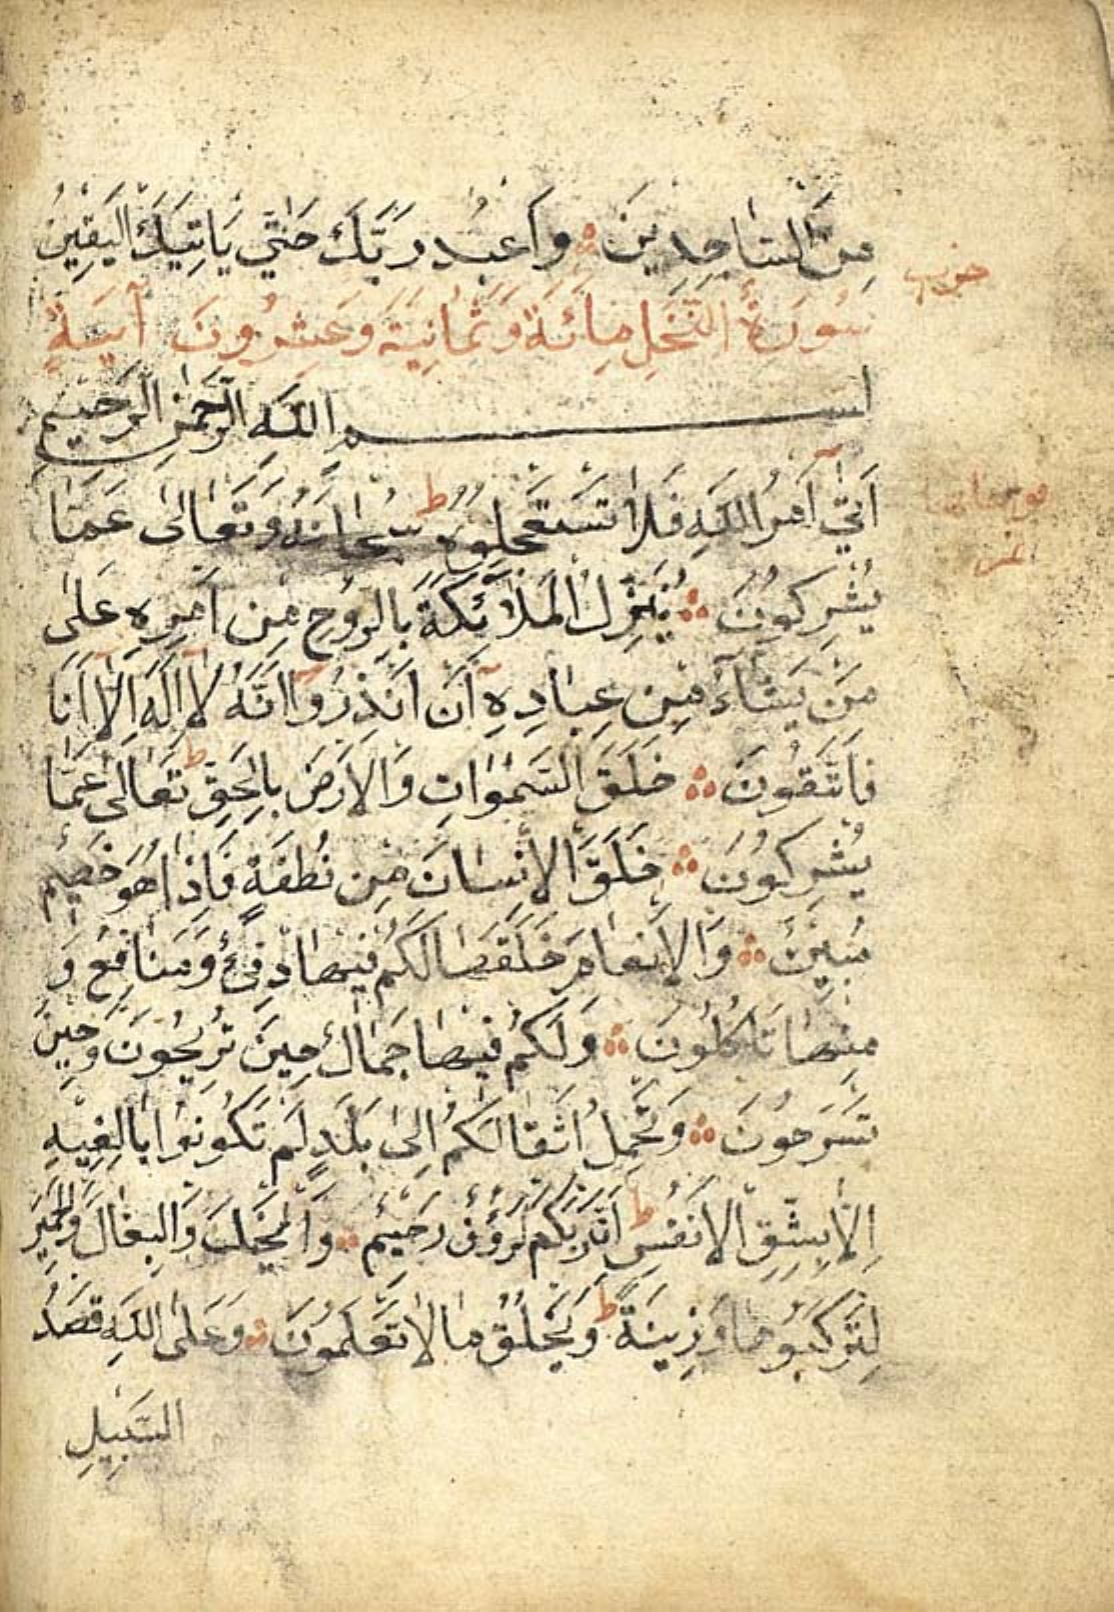 مِنَ السَّاجِدِينَ وَاعْبُدْ رَبَّكَ حَتَّى يَاتِيَكَ الْيَقِينُ
حزب
سُورَةُ النَّحْلِ مِائَةٌ وَثَمَانِيَةٌ وَعِشْرُونَ آيَةً
بسم الله الرَّحْمٰنِ الرَّحِيمِ
اَتٰٓى اَمْرُ اللّٰهِ فَلَا تَسْتَعْجِلُوهُ ط سُبْحَانَهُ وَتَعَالٰى عَمَّا
يُشْرِكُونَ يُنَزِّلُ الْمَلَائِكَةَ بِالرُّوحِ مِنْ اَمْرِهِ عَلٰى
مَنْ يَشَآءُ مِنْ عِبَادِهِٓ اَنْ اَنْذِرُوٓا اَنَّهُ لَآ اِلٰهَ اِلَّآ اَنَا
فَاتَّقُونَ خَلَقَ السَّمٰوَاتِ وَالْاَرْضَ بِالْحَقِّ ط تَعَالٰى عَمَّا
يُشْرِكُونَ خَلَقَ الْاِنْسَانَ مِنْ نُطْفَةٍ فَاِذَا هُوَ خَصِيمٌ
مُبِينٌ وَالْاَنْعَامَ خَلَقَهَا لَكُمْ فِيهَا دِفْءٌ وَمَنَافِعُ وَ
مِنْهَا تَاكُلُونَ وَلَكُمْ فِيهَا جَمَالٌ حِينَ تُرِيحُونَ وَحِينَ
تَسْرَحُونَ وَتَحْمِلُ اَثْقَالَكُمْ اِلٰى بَلَدٍ لَمْ تَكُونُوا بَالِغِيهِ
اِلَّا بِشِقِّ الْاَنْفُسِ ط اِنَّ رَبَّكُمْ لَرَؤُفٌ رَحِيمٌ وَالْخَيْلَ وَالْبِغَالَ وَالْحَمِيرَ
لِتَرْكَبُوهَا وَزِينَةً ط وَيَخْلُقُ مَا لَا تَعْلَمُونَ وَعَلَى اللّٰهِ قَصْدُ
السَّبِيلِ